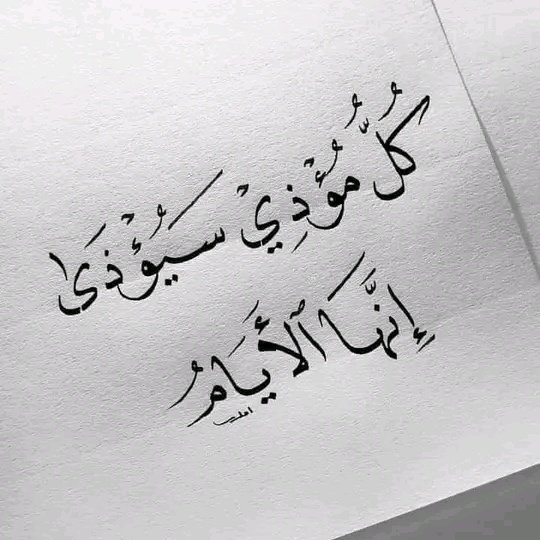 كُلُّ مُؤْذِيْ سَيُؤْذَىٰ
إِنَّهَا ٱلْأَيَامُ